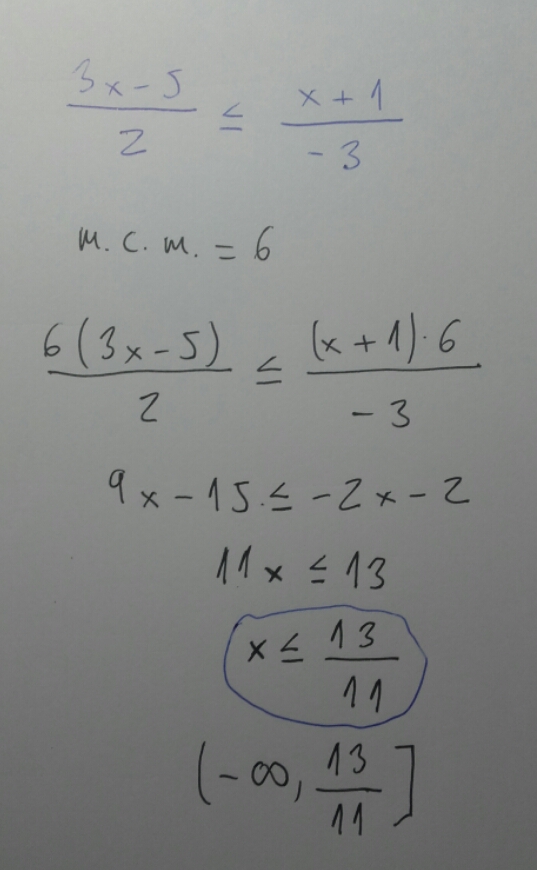 (3x-5)/2 ≤ (x+1)/(-3)
m.c.m. = 6
6(3x-5)/2 ≤ (x+1)·6/(-3)
9x-15 ≤ -2x-2
11x ≤ 13
x ≤ 13/11
(-∞, 13/11]